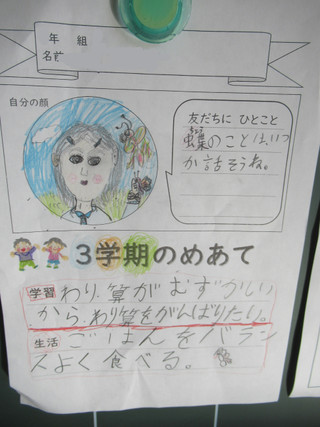 年 組
名前
自分の顔
友だちに ひとこと
のことは、いつ
か話そうね。
3学期のめあて
学習 わり算がむずかしい
から、わり算をがんばりたい。
生活 ごはんをバラン
スよく食べる。